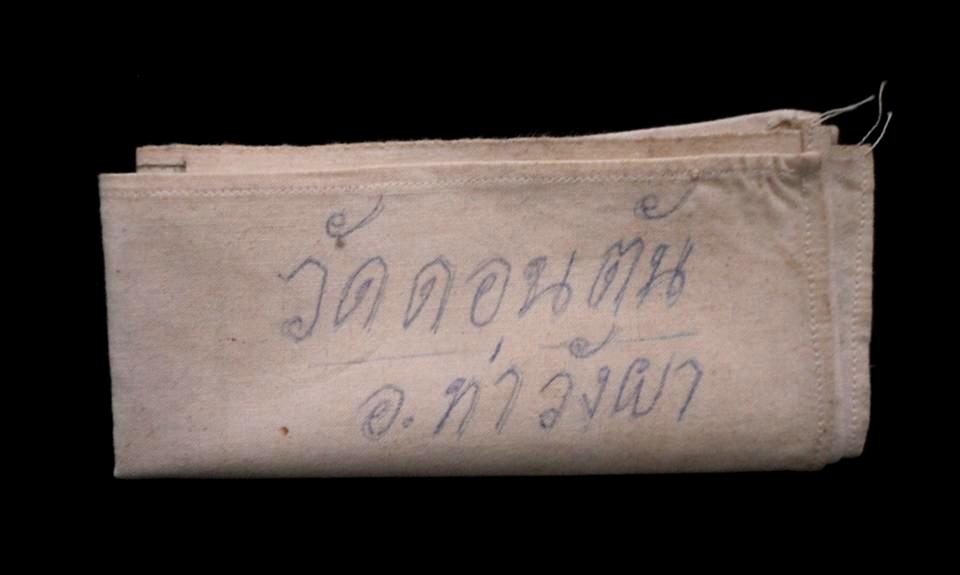 วัดดอนตัน
อ.ท่าวังผา